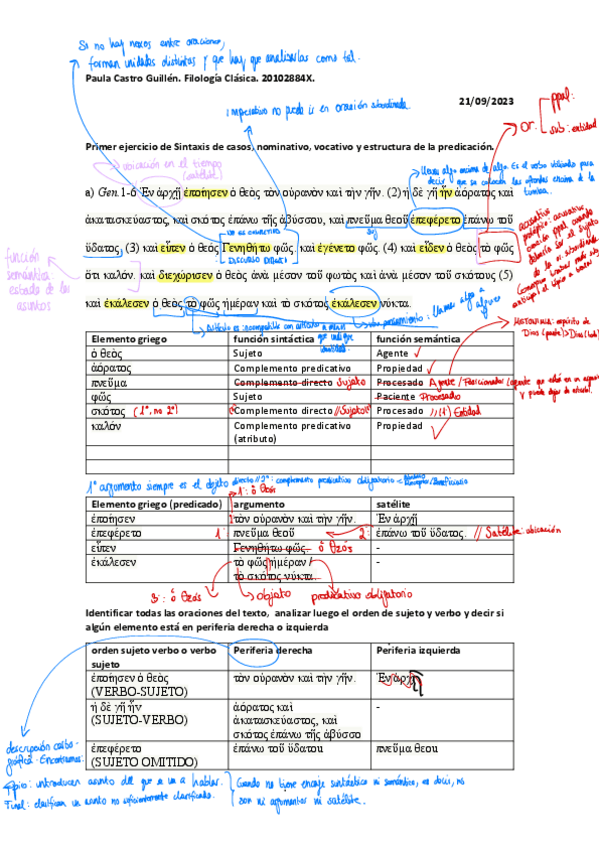 Si no hay nexos entre oraciones,
forman unidades distintas y que hay que analizarlas como tal.
Paula Castro Guillén. Filología Clásica. 20102884X.
21/09/2023
Imperativo no puede ir en oración subordinada.
or.
ppal.
sub: entidad
Primer ejercicio de Sintaxis de casos, nominativo, vocativo y estructura de la predicación.
ubicación en el tiempo
(satélite)
Llevar algo encima de algo. Es el verbo utilizado para
decir que se colocan las ofrendas encima de la
tumba.
a) Gen.1-6 Ἐν ἀρχῇ ἐποίησεν ὁ θεὸς τὸν οὐρανὸν καὶ τὴν γῆν. (2) ἡ δὲ γῆ ἦν ἀόρατος καὶ
ἀκατασκεύαστος, καὶ σκότος ἐπάνω τῆς ἀβύσσου, καὶ πνεῦμα θεοῦ ἐπεφέρετο ἐπάνω τοῦ
ὕδατος, (3) καὶ εἶπεν ὁ θεὸς Γενηθήτω φῶς. καὶ ἐγένετο φῶς. (4) καὶ εἶδεν ὁ θεὸς τὸ φῶς
DISCURSO DIRECTO
ὅτι καλόν. καὶ διεχώρισεν ὁ θεὸς ἀνὰ μέσον τοῦ φωτὸς καὶ ἀνὰ μέσον τοῦ σκότους (5)
καὶ ἐκάλεσεν ὁ θεὸς τὸ φῶς ἡμέραν καὶ τὸ σκότος ἐκάλεσεν νύκτα.
función
semántica
estado de los
asuntos
Llamar algo a
alguien
Elemento griego función sintáctica función semántica
ὁ θεὸς Sujeto Agente
ἀόρατος Complemento predicativo Propiedad
πνεῦμα Complemento directo Sujeto Procesado Agente/Posicionador (agente que está en un lugar
y puede dejar de estarlo).
METONIMIA: espíritu de
Dios (parte) > Dios (todo)
φῶς Sujeto Paciente Procesado
σκότος (1º, no 2º) Complemento directo // Sujeto(1º) Procesado // (1º) Entidad
καλόν Complemento predicativo Propiedad
(atributo)
1º argumento siempre es el objeto directo // 2º: complemento predicativo obligatorio
1: ὁ θεός
Elemento griego (predicado) argumento satélite
ἐποίησεν τὸν οὐρανὸν καὶ τὴν γῆν. Ἐν ἀρχῇ
ἐπεφέρετο 1: πνεῦμα θεοῦ 2: ἐπάνω τοῦ ὕδατος. // Satélite: ubicación
εἶπεν Γενηθήτω φῶς. ὁ θεός -
ἐκάλεσεν τὸ φῶς ἡμέραν / -
τὸ σκότος νύκτα.
3: ὁ θεός objeto predicativo obligatorio
Identificar todas las oraciones del texto, analizar luego el orden de sujeto y verbo y decir si
algún elemento está en periferia derecha o izquierda
orden sujeto verbo o verbo Periferia derecha Periferia izquierda
sujeto
ἐποίησεν ὁ θεὸς τὸν οὐρανὸν καὶ τὴν γῆν. Ἐν ἀρχῇ
(VERBO-SUJETO)
ἡ δὲ γῆ ἦν ἀόρατος καὶ -
(SUJETO-VERBO) ἀκατασκεύαστος, καὶ
σκότος ἐπάνω τῆς ἀβύσσο
ἐπεφέρετο ἐπάνω τοῦ ὕδατου πνεῦμα θεου
(SUJETO OMITIDO)
Ppio: introducen asunto del que se va a hablar.
Final: clarifican un asunto no suficientemente clarificado.
Cuando no tiene encaje sintáctico ni semántico, es decir, no
son ni argumentos ni satélite.